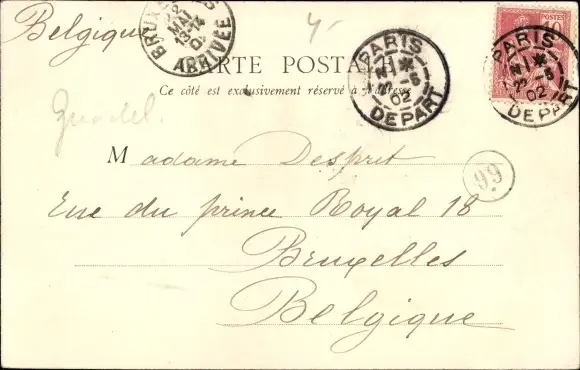 Belgique
BRUXE
MAI
13-14
ARRIVÉE
CARTE POSTALE
Ce côté est exclusivement réservé à l'adresse
PARIS
N 1 *
02
DEPART
POSTES
10
PARIS
N 1 *
02
DEPART
Madame Despret
Rue du prince Royal 18
99
Bruxelles
Belgique